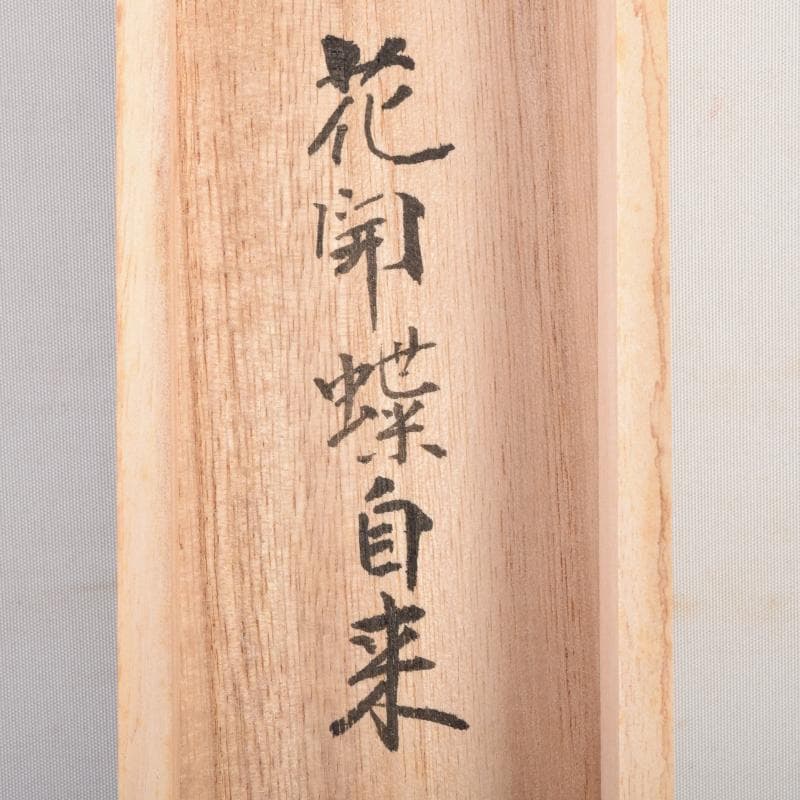 花開蝶自来